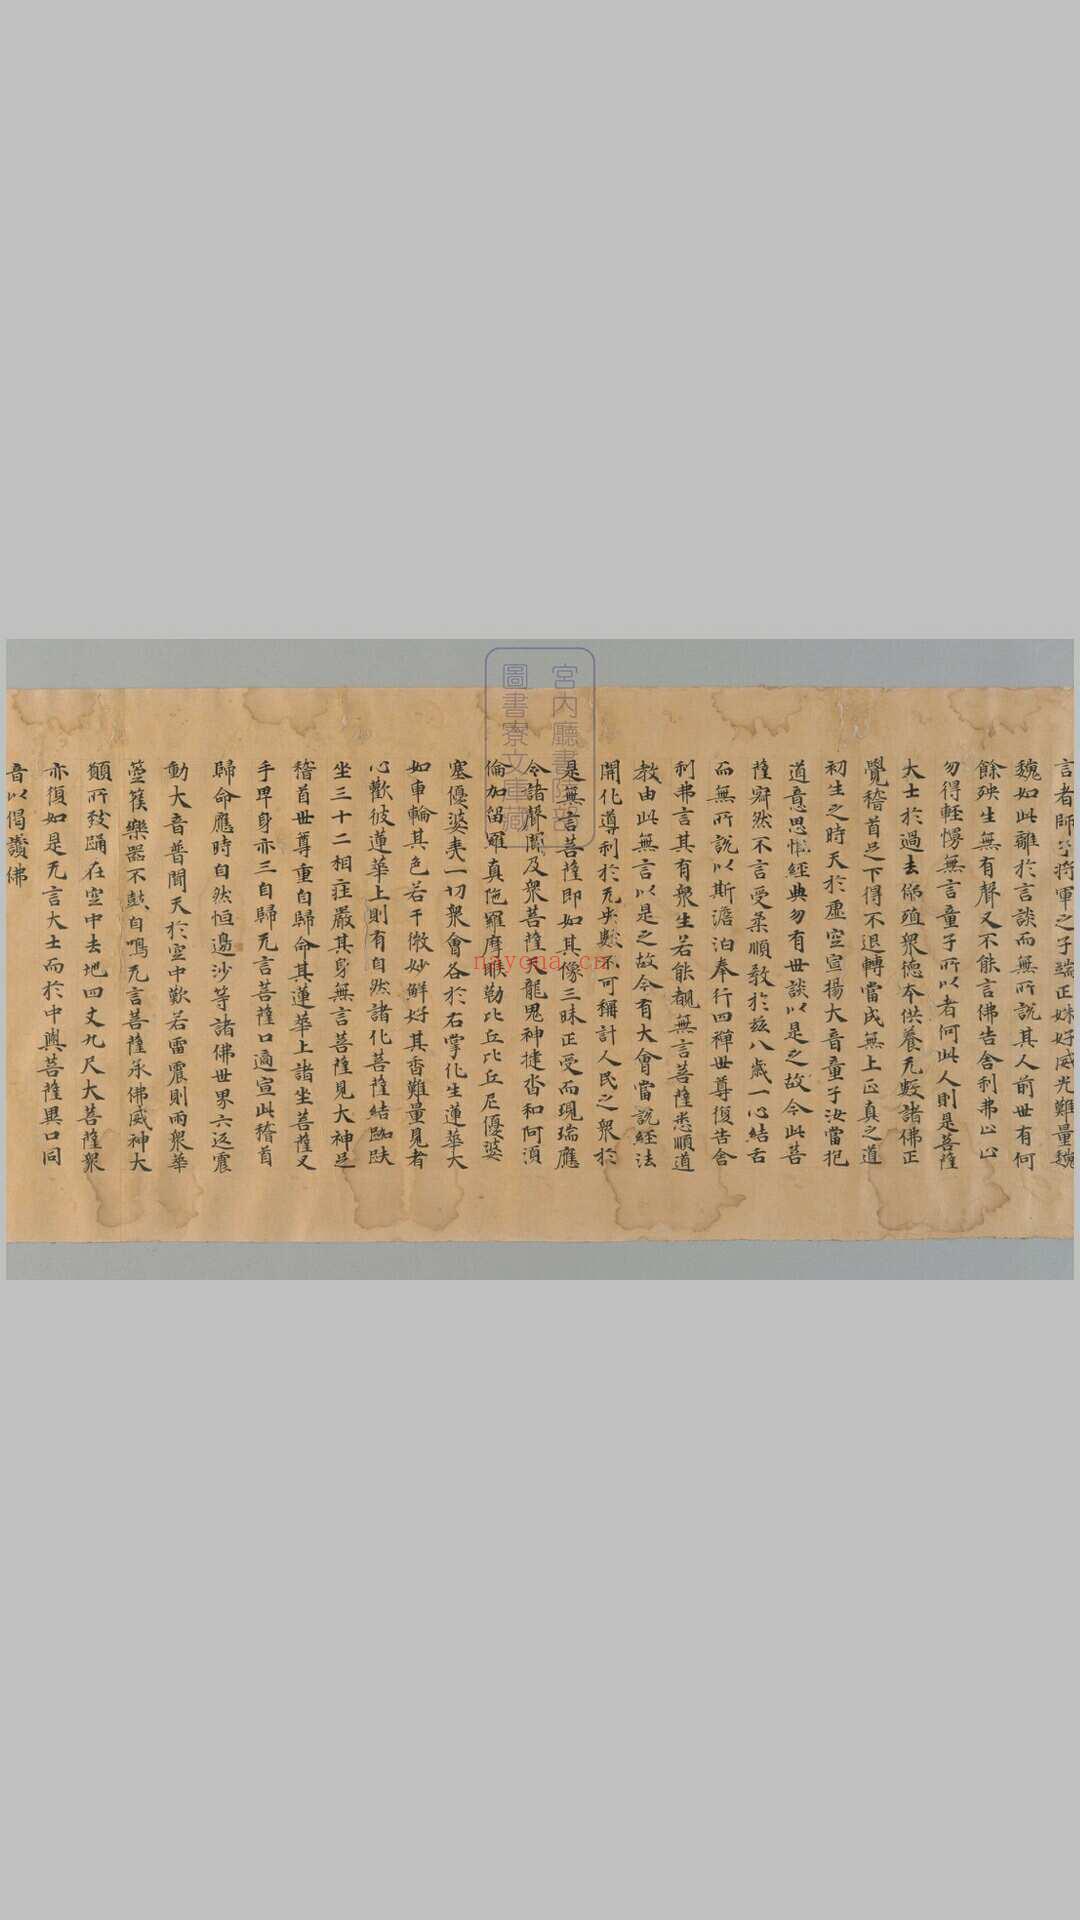 言者師子將軍之子端正姝好威光難量巍
巍如此離於言談而無所說其人前世有何
餘殃生無有聲又不能言佛告舍利弗止止
勿得輕慢無言童子所以者何此人則是菩薩
大士於過去佛殖衆德本供養无數諸佛正
覺稽首足下得不退轉當成無上正真之道
初生之時天於虛空宣揚大音童子汝當犯
道意思惟經典勿有世談以是之故今此菩
薩寂然不言受柔順教於玆八歲一心結舌
而無所說以斯澹泊奉行四禪世尊復告舍
利弗言其有衆生若能覩無言菩薩悉順道
教由此無言以是之故今有大會當說經法
開化導利於无央數不可稱計人民之衆於
是無言菩薩即如其像三昧正受而現瑞應
令諸聲聞及衆菩薩天龍鬼神揵沓和阿須
倫加留羅真陁羅摩睺勒比丘比丘尼優婆
塞優婆夷一切衆會各於右掌化生蓮華大
如車輪其色若干微妙鮮好其香難量見者
心歡彼蓮華上則有自然諸化菩薩結跏趺
坐三十二相莊嚴其身無言菩薩見大神足
稽首世尊重自歸命其蓮華上諸坐菩薩叉
手畢身亦三自歸无言菩薩口適宣此稽首
歸命應時自然恒邊沙等諸佛世界六返震
動大音普聞天於空中歎若雷震則雨衆華
箜篌樂器不鼓自鳴无言菩薩承佛威神大
顛所致踊在空中去地四丈九尺大菩薩衆
亦復如是无言大士而於中與菩薩異口同
音以偈讚佛
宮內廳書陵部
圖書寮文庫藏
nayona.cn